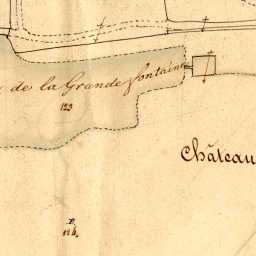 de la Grande fontaine
123
Château
124